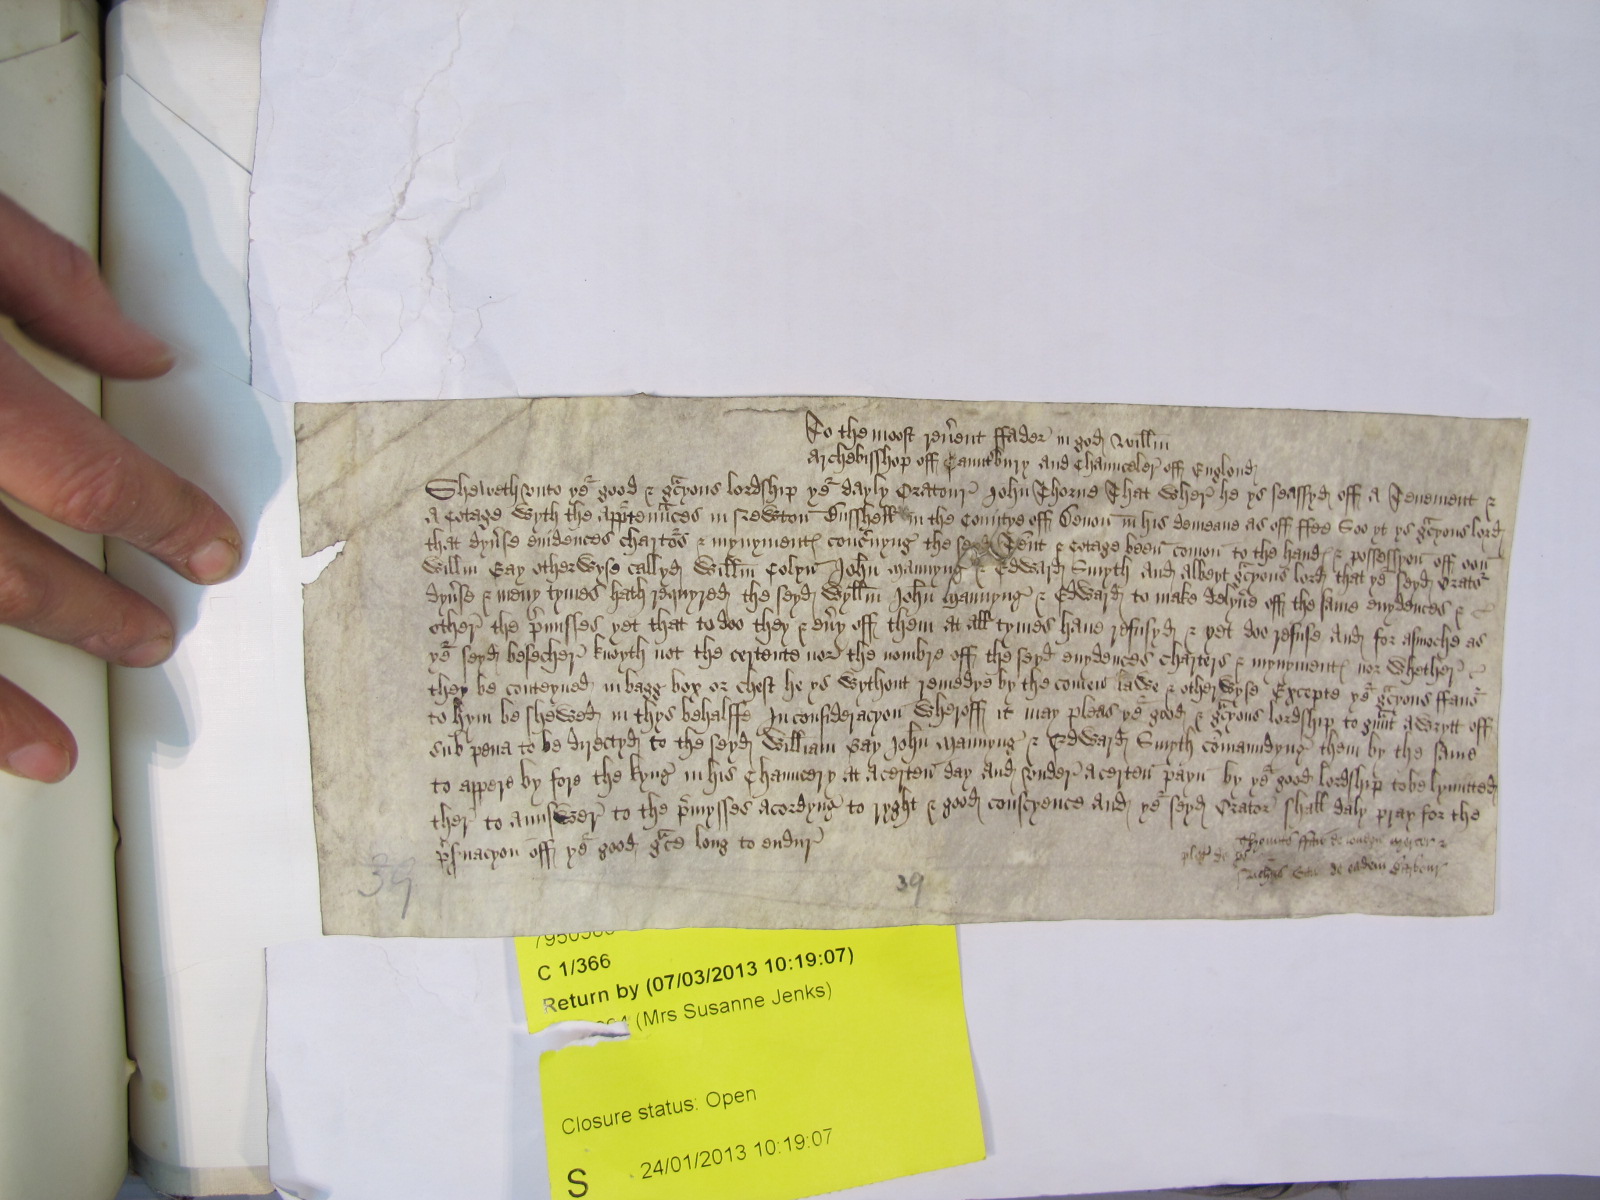 To the moost reuent ffader in god Willm
Archebisshop off Cauntbury and Chaunceler off Englond
Sheweth vnto yor good & gracyous lordship yor dayly Oratour John Thorne That Wher he ys seassyd off a Tenement &
a Cotage wyth the apptenunces in Newton in the Countye off Deuon in his demeane as off ffee Soo yt ys gracyous lord
that dyuse euidences chartors & mynyment concnyng the seyd Tent & Cotage been comon to the hand & possessyon off oon
Willm Gay otherwyse callyd Willm Colyn John Mannyng & Edward Smyth And albeyt gracyous lord that yor seyd Orator
dyuse & meny tymes hath requyred the seyd Wyllm John Mannyng & Edward to make delyue off the same euydences &
other the pmisses yet that to doo they & euy off them at all tymes haue refusyd & yet doo refuse And for asmoche as
yor seyd besecher knoyth not the certente nor the nombre off the seyd euydences charters & mynyment nor whether
they be conteyned in bagg box or chest he ys wythout remedye by the comen lawe & otherwyse Excepte yor gracyous ffauor
to hym be shewed in thys behalffe In consideracyon wheroff it may pleas yor good & gracyous lordship to gunt a wrytt off
sub pena to be dyrectyd to the seyd William Gay John Mannyng & Edward Smyth comaundyng them by the same
to appere by fore the kyng in his Chauncery at a certen day and vnder a certen payn by yor good lordship to be lymitted
ther to aunswer to the pmysses acordyng to ryght & good conscyence And yor seyd Orator shall daly pray for the
psuacyon off yor good grace long to endur
pleg de ps
Thomas de london mercer &
de eadem
39
39
C 1/366
Return by (07/03/2013 10:19:07)
(Mrs Susanne Jenks)
Closure status: Open
S 24/01/2013 10:19:07